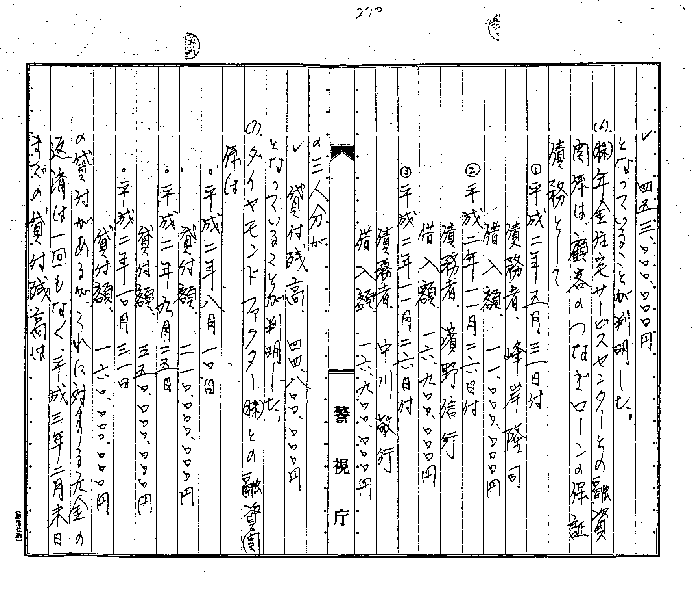 四五三、〇〇〇、〇〇〇円
となっていることが判明した。
(6) ㈱年金住宅サービスセンターとの融資
関係は、顧客のつなぎローンの保証
債務として
①平成二年五月三一日付
債務者 峰岸隆司
借入額 一一、〇〇〇、〇〇〇円
②平成二年一一月二六日付
債務者 濱野信行
借入額 一六、九〇〇、〇〇〇円
③平成二年一一月二六日付
債務者 中川 行
借入額 一六、九〇〇、〇〇〇円
警視庁
の三人分が
貸付残高 四四、八〇〇、〇〇〇円
となっていることが判明した。
(7) ダイヤモンドファクター㈱との融資関
係は
・平成二年八月一〇日
貸付額 二一〇、〇〇〇、〇〇〇円
・平成二年 月二五日
貸付額 五五〇、〇〇〇、〇〇〇円
・平成二年一〇月三一日
貸付額 一六〇、〇〇〇、〇〇〇円
の貸付があるが、これに対する元金の
返済は一回もなく、平成三年二月末日
までの貸付残高は